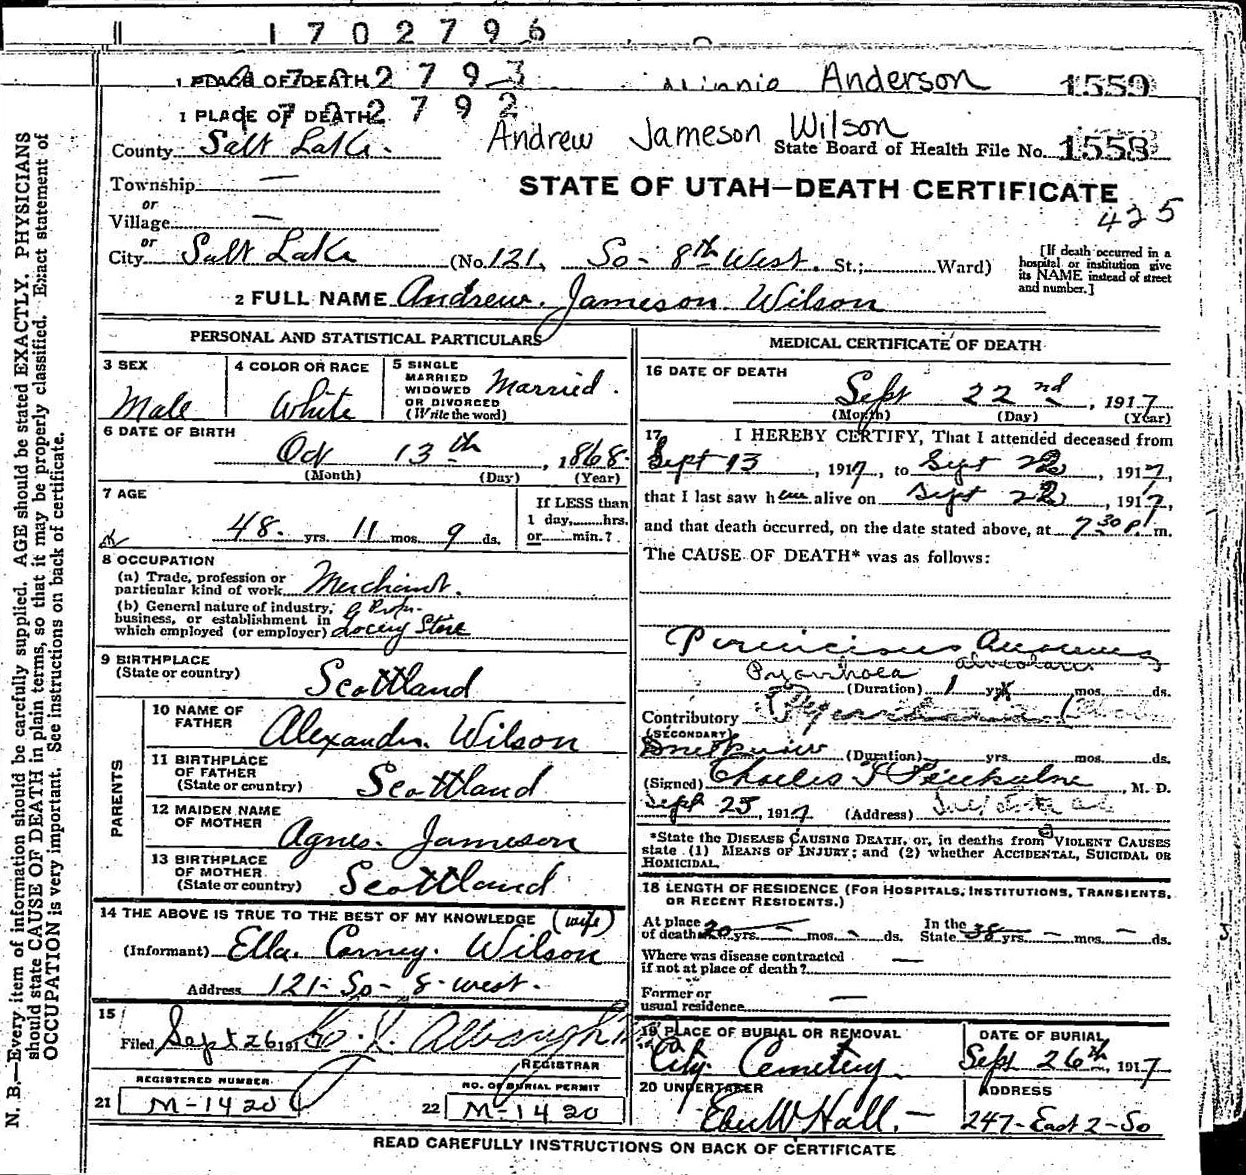 1702796
1 PLACE OF DEATH 2793 Minnie Anderson 1559
1 PLACE OF DEATH 2792
County Salt Lake. Andrew Jameson Wilson State Board of Health File No. 1558
Township —
or
STATE OF UTAH—DEATH CERTIFICATE
425
Village —
or
City Salt Lake (No. 121, So- 8th West. St.; Ward)
[If death occurred in a hospital or institution give its NAME instead of street and number.]
2 FULL NAME Andrew. Jameson Wilson
PERSONAL AND STATISTICAL PARTICULARS
3 SEX
Male
4 COLOR OR RACE
White
5 SINGLE
MARRIED
WIDOWED
OR DIVORCED
(Write the word)
Married.
6 DATE OF BIRTH
Oct 13th, 1868.
(Month) (Day) (Year)
7 AGE
48. yrs. 11 mos. 9 ds.
If LESS than
1 day,......hrs.
or......min.?
8 OCCUPATION
(a) Trade, profession or
particular kind of work Merchant.
(b) General nature of industry,
business, or establishment in
which employed (or employer) Grocery Store
9 BIRTHPLACE
(State or country) Scottland
PARENTS
10 NAME OF
FATHER Alexander. Wilson
11 BIRTHPLACE
OF FATHER
(State or country) Scottland
12 MAIDEN NAME
OF MOTHER Agnes. Jameson
13 BIRTHPLACE
OF MOTHER
(State or country) Scottland
14 THE ABOVE IS TRUE TO THE BEST OF MY KNOWLEDGE (wife)
(Informant) Ella. Carney. Wilson
Address 121- So- 8- west.
15
Filed Sept 26 191
REGISTRAR
REGISTERED NUMBER
21 M-1420
NO. OF BURIAL PERMIT
22 M-1420
MEDICAL CERTIFICATE OF DEATH
16 DATE OF DEATH
Sept 22nd, 1917
(Month) (Day) (Year)
17 I HEREBY CERTIFY, That I attended deceased from
Sept 13, 1917, to Sept 22, 1917,
that I last saw him alive on Sept 22, 1917,
and that death occurred, on the date stated above, at 7 30 P. m.
The CAUSE OF DEATH* was as follows:
Pernicious Anaemia
Pyorrhoea alveolaris
(Duration) 1 yrs. mos. - ds.
Contributory
(SECONDARY)
(Duration) yrs. mos. ds.
(Signed) Charles, M. D.
Sept 25, 1917 (Address)
*State the DISEASE CAUSING DEATH, or, in deaths from VIOLENT CAUSES
state (1) MEANS OF INJURY; and (2) whether ACCIDENTAL, SUICIDAL OR
HOMICIDAL.
18 LENGTH OF RESIDENCE (FOR HOSPITALS, INSTITUTIONS, TRANSIENTS,
OR RECENT RESIDENTS.)
At place
of death 20 yrs. — mos. - ds. In the
State 38 yrs. — mos. — ds.
Where was disease contracted
if not at place of death? —
Former or
usual residence —
19 PLACE OF BURIAL OR REMOVAL
City Cemetery
DATE OF BURIAL
Sept 26th, 1917
20 UNDERTAKER
Eber W Hall. —
ADDRESS
247- East 2- So
READ CAREFULLY INSTRUCTIONS ON BACK OF CERTIFICATE
N. B.—Every item of information should be carefully supplied. AGE should be stated EXACTLY. PHYSICIANS
should state CAUSE OF DEATH in plain terms, so that it may be properly classified. Exact statement of
OCCUPATION is very important. See instructions on back of certificate.